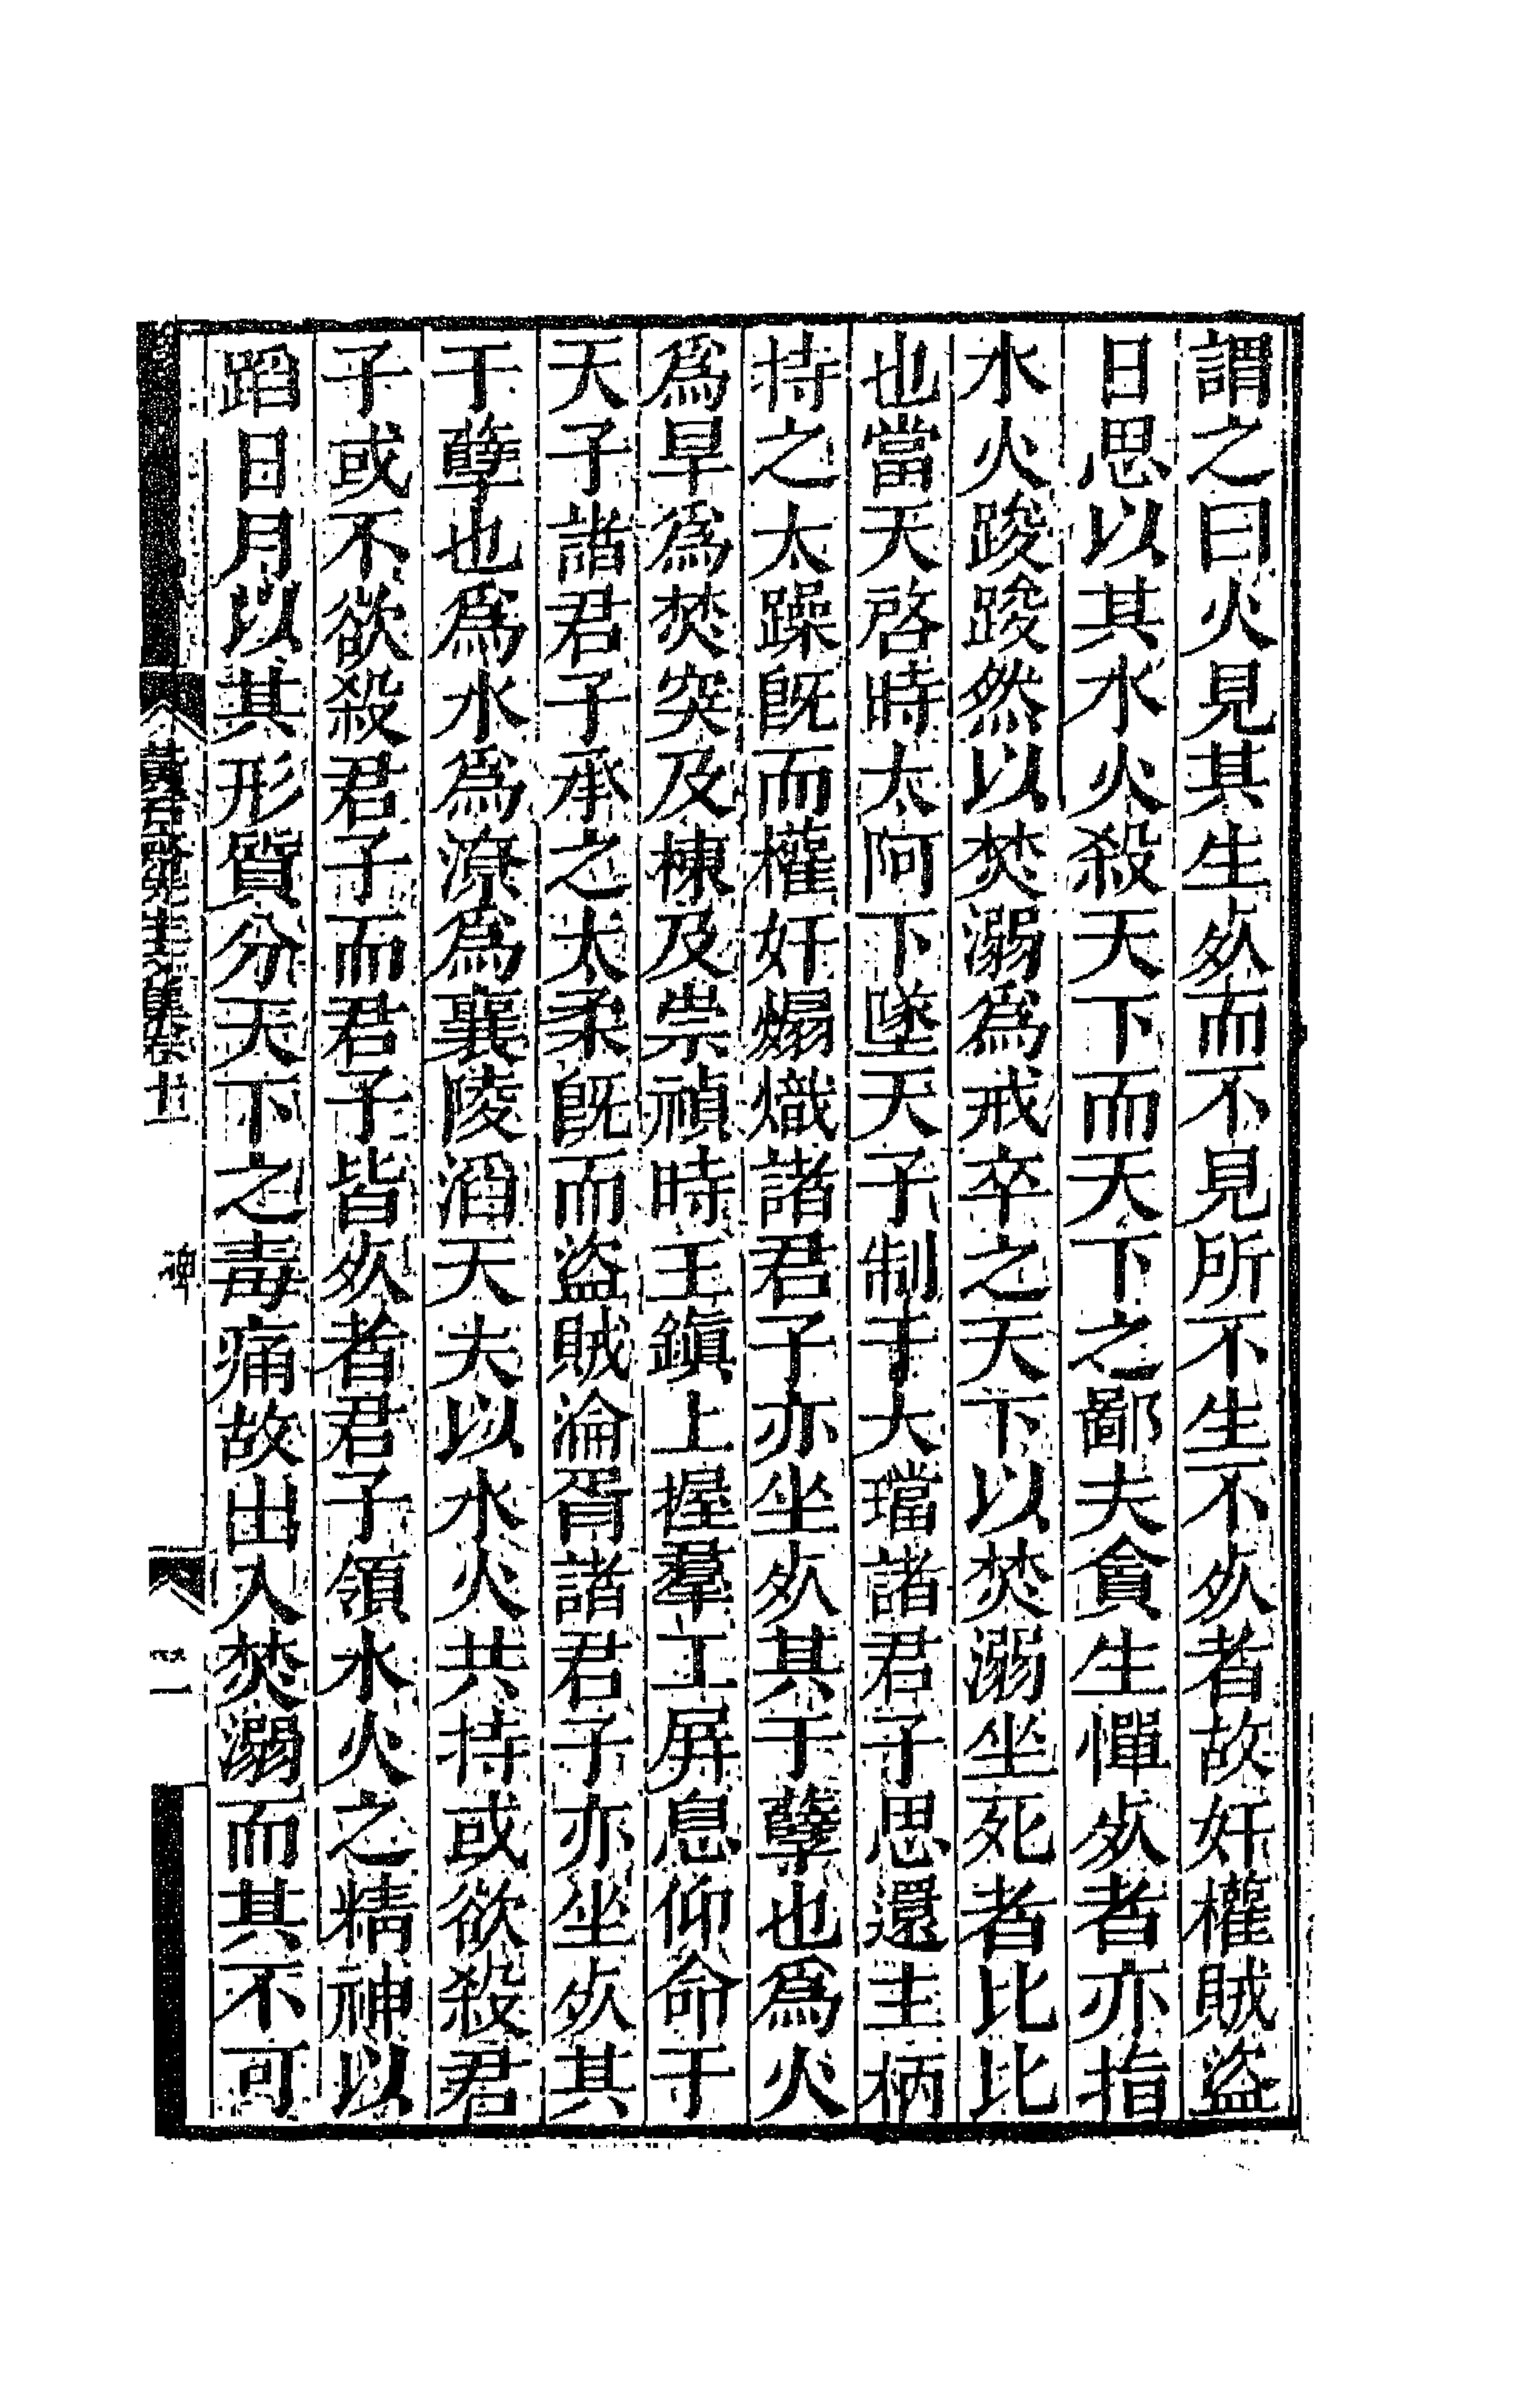 謂之曰火見其生㱙而不見所不生不㱙者故奸權賊盜
日思以其水火殺天下而天下之鄙夫貪生憚㱙者亦指
水火踆踆然以焚溺爲戒卒之天下以焚溺坐死者比比
也當天啓時太阿下墜天子制于大璫諸君子思還主柄
持之太躁旣而權奸煽熾諸君子亦坐㱙其于孽也爲火
爲旱爲焚突及棟及崇禎時王鎭上握羣工屏息仰命于
天子諸君子承之太柔旣而盜賊淪胥諸君子亦坐㱙其
于孽也爲水爲潦爲襄陵滔天夫以水火共持或欲殺君
子或不欲殺君子而君子皆㱙者君子領水火之精神以
蹈日月以其形質分天下之毒痛故出入焚溺而其不可
碑